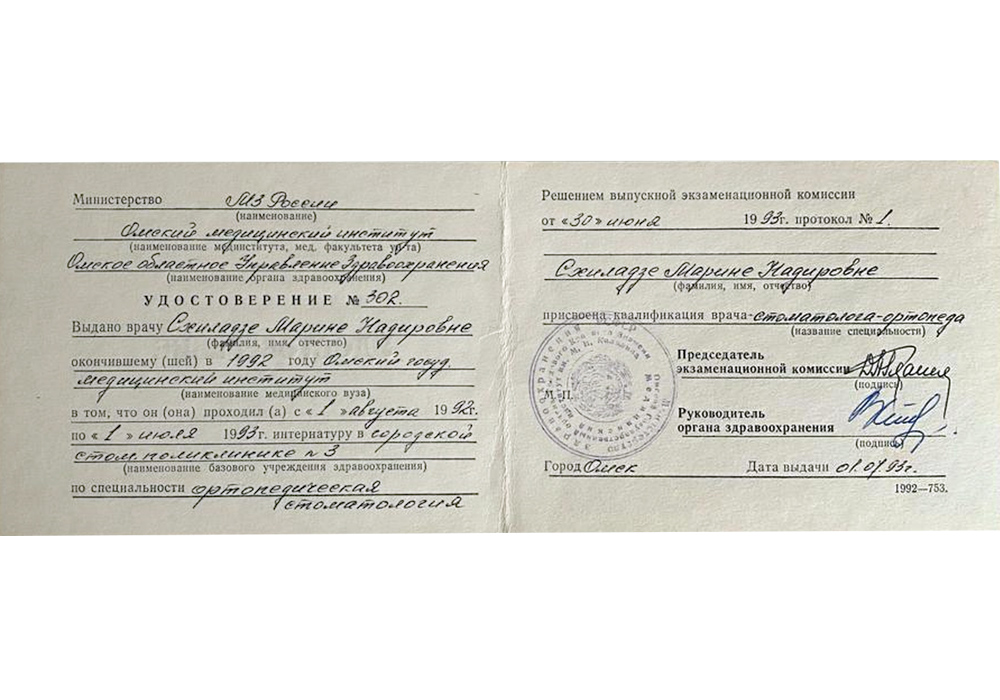 Министерство МЗ России
(наименование)
Омский медицинский институт
(наименование мединститута, мед. факультета ун-та)
Омское областное Управление Здравоохранения
(наименование органа здравоохранения)
УДОСТОВЕРЕНИЕ № 302.
Выдано врачу Схиладзе Марине Надировне
(фамилия, имя, отчество)
окончившему (шей) в 1992 году Омский госуд.
медицинский институт
(наименование медицинского вуза)
в том, что он (она) проходил (а) с «1» августа 1992г.
по «1» июля 1993г. интернатуру в городской
стом. поликлинике № 3
(наименование базового учреждения здравоохранения)
по специальности ортопедическая
стоматология
Решением выпускной экзаменационной комиссии
от «30» июня 1993г. протокол № 1.
Схиладзе Марине Надировне
(фамилия, имя, отчество)
присвоена квалификация врача-стоматолога-ортопеда
(название специальности)
Председатель
экзаменационной комиссии
(подпись)
М. П.
Руководитель
органа здравоохранения
(подпись)
Город Омск Дата выдачи 01.07.93г.
1992—753.